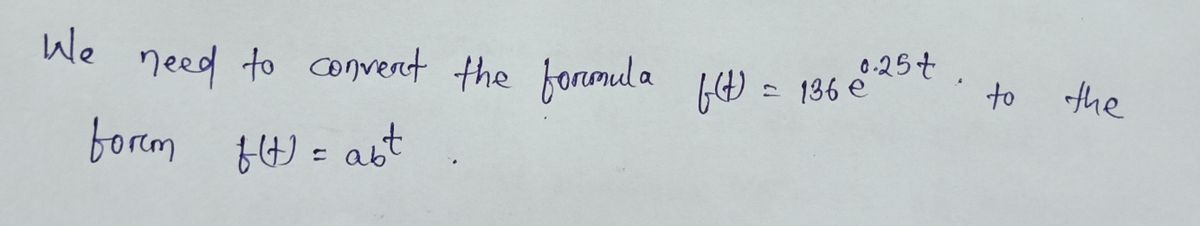 We need to convert the formula f(t) = 136 e^0.25t . to the
form f(t) = ab^t .